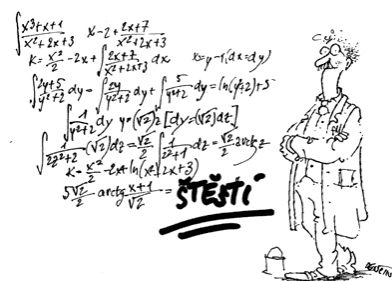 ∫ x³+x+1 / x²+2x+3 x-2+ 2x+7 / x²+2x+3
K= x²/2 -2x+∫ 2x+7 / x²+2x+3 dx x=y-1(dx=dy)
∫ 2y+5 / y²+2 dy=∫ 2y / y²+2 dy+∫ 5 / y²+2 dy=ln(y²+2)+5
∫ 1 / y²+2 dy y=(√2)z [dy=(√2)dz]
∫ 1 / 2z²+2 (√2)dz= √2/2 ∫ 1 / z²+1 dz= √2/2 arctg z
K= x²/2 -2x+ln(x²+2x+3)
5√2/2 arctg x+1 / √2 = ŠTĚSTÍ